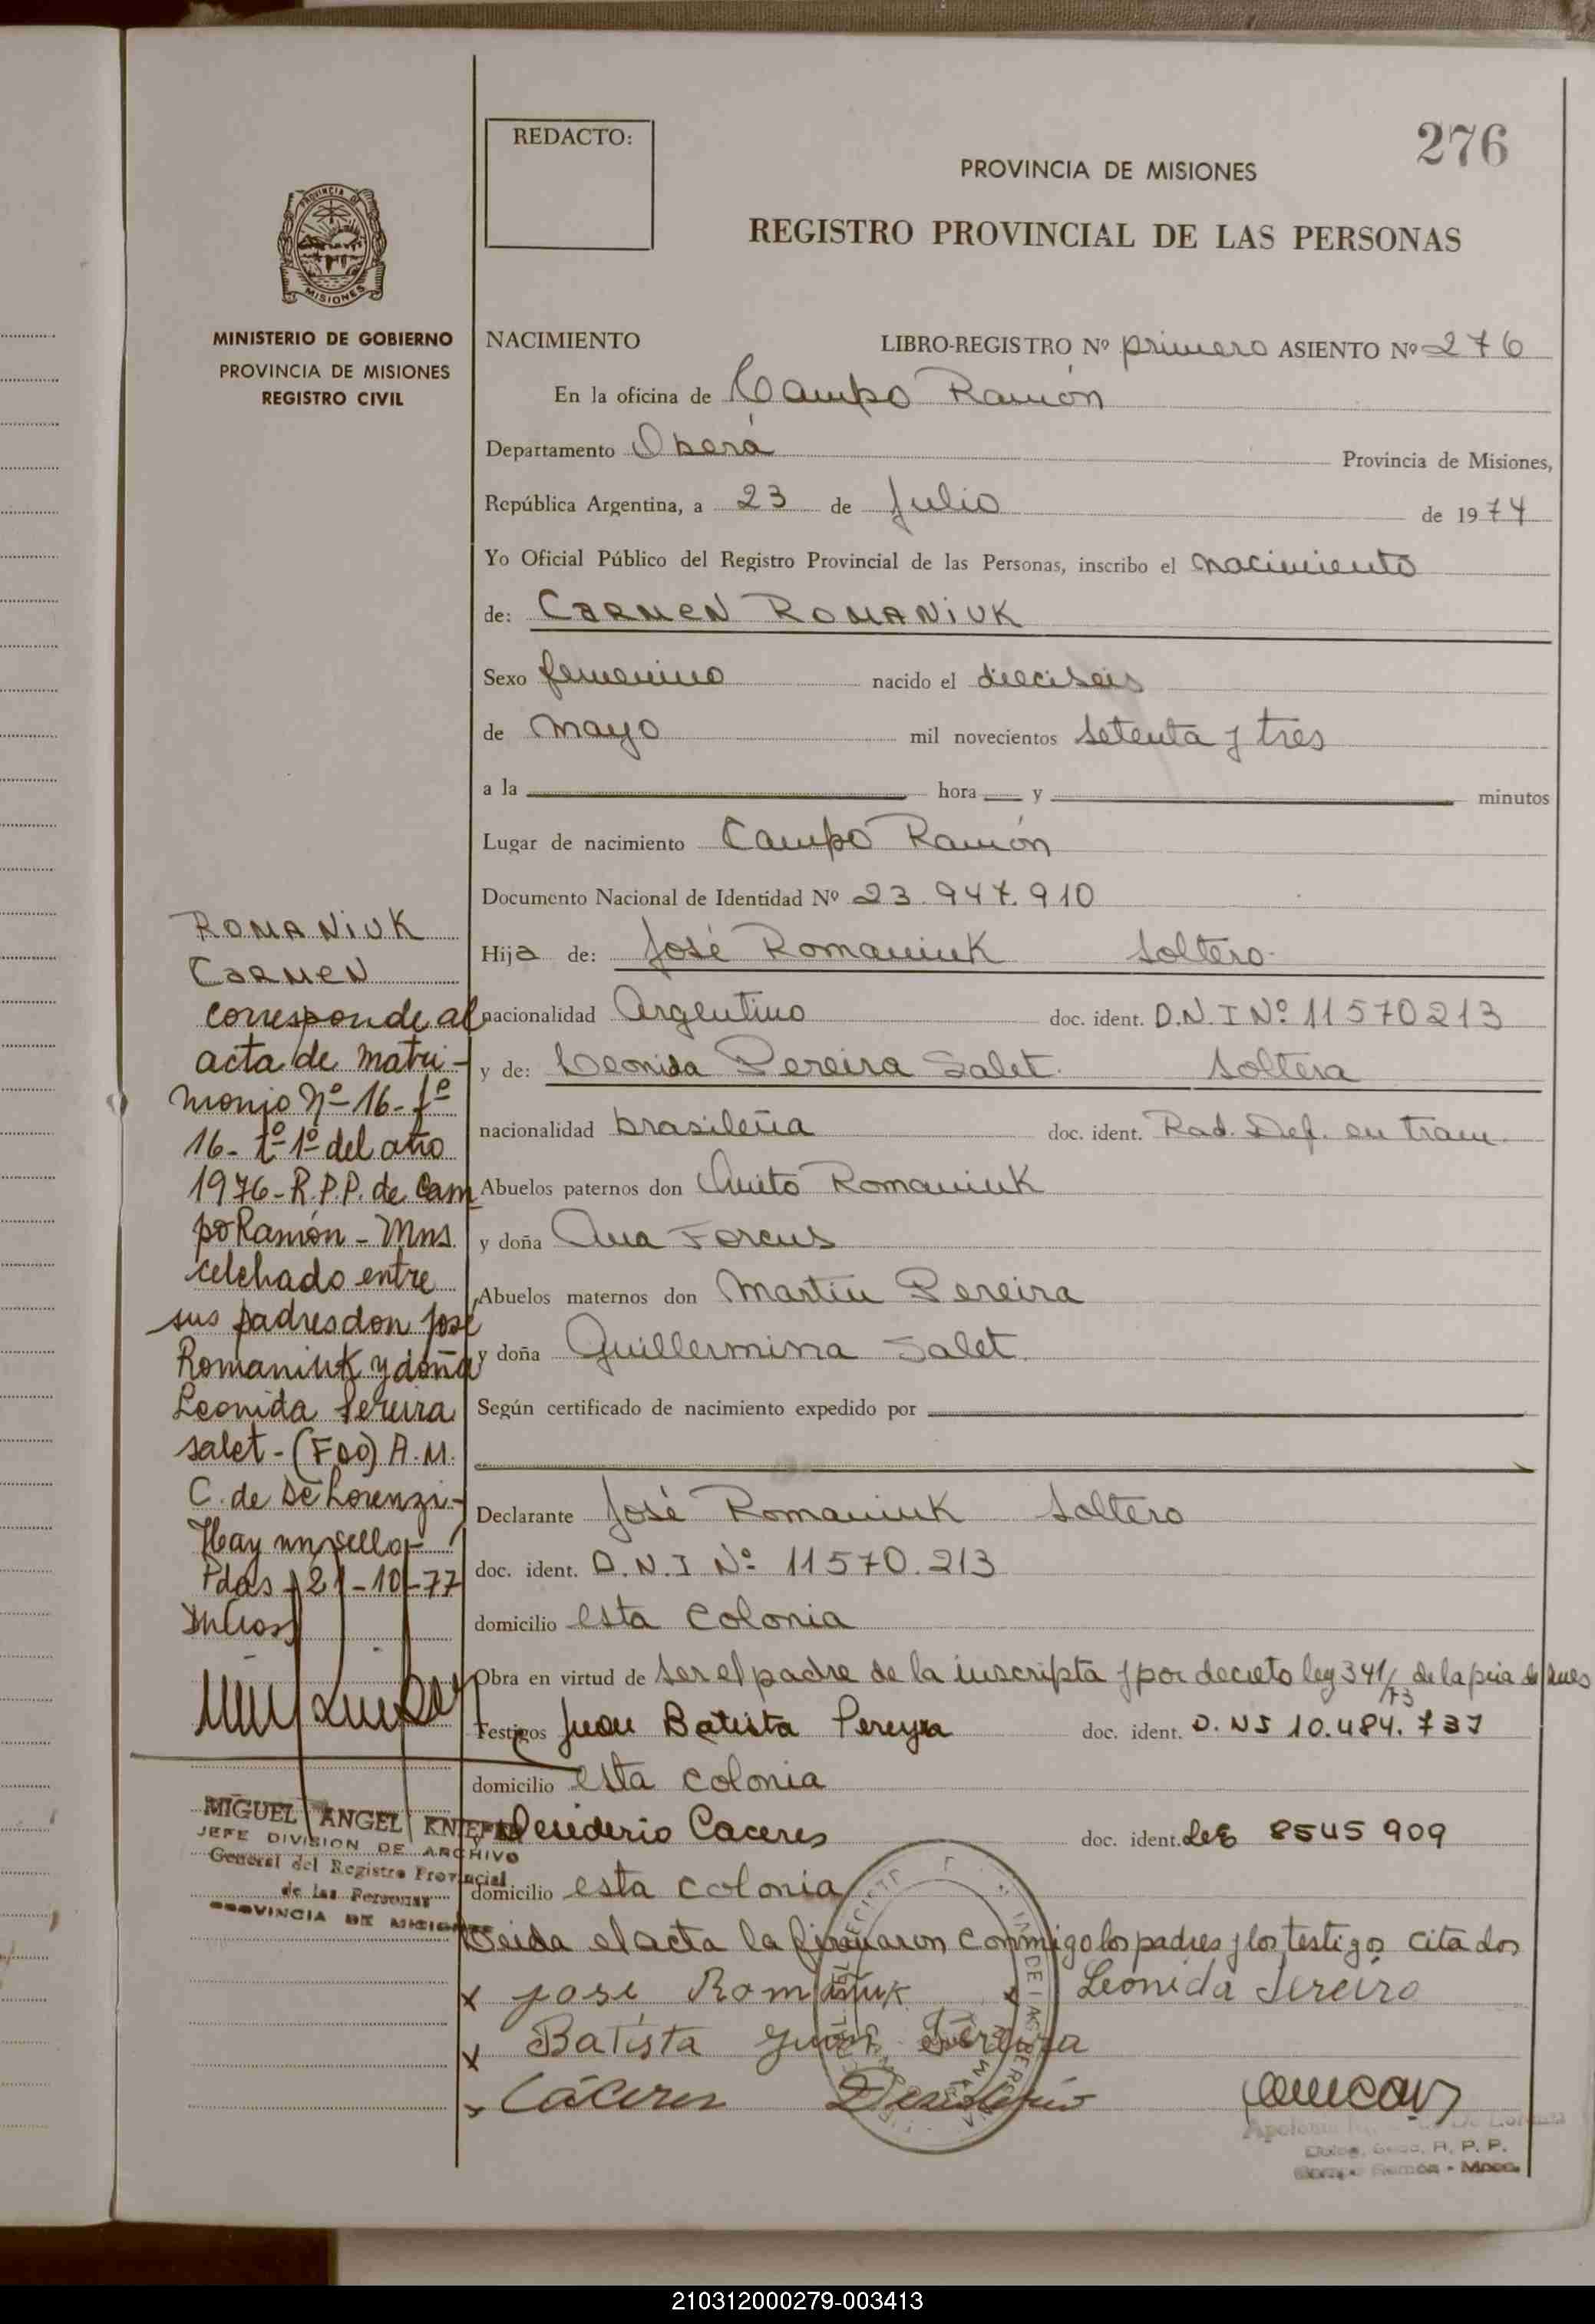 276
REDACTO:
PROVINCIA DE MISIONES
REGISTRO PROVINCIAL DE LAS PERSONAS
PROVINCIA DE
MISIONES
MINISTERIO DE GOBIERNO
PROVINCIA DE MISIONES
REGISTRO CIVIL
NACIMIENTO LIBRO-REGISTRO Nº primero ASIENTO Nº 276
En la oficina de Campo Ramón
Departamento Oberá Provincia de Misiones,
República Argentina, a 23 de Julio de 1974
Yo Oficial Público del Registro Provincial de las Personas, inscribo el nacimiento
de: CARMEN ROMANIUK
Sexo femenino nacido el dieciseis
de mayo mil novecientos setenta y tres
a la hora y minutos
Lugar de nacimiento Campo Ramón
Documento Nacional de Identidad Nº 23.947.910
Hija de: José Romaniuk soltero
nacionalidad Argentino doc. ident. D.N.I Nº 11570213
y de: Leonida Pereira Salet. soltera
nacionalidad brasileña doc. ident. Rad. Def. en tram.
Abuelos paternos don Romaniuk
y doña Ana Forcus
Abuelos maternos don Martin Pereira
y doña Guillermina Salet.
Según certificado de nacimiento expedido por
Declarante José Romaniuk soltero
doc. ident. D.N.I Nº 11570.213
domicilio esta colonia
Obra en virtud de ser el padre de la inscripta y por decreto ley 341/73 de la pcia de
Testigos Juan Batista Pereyra doc. ident. D.NI 10.484.737
domicilio esta colonia
Desiderio Caceres doc. ident. LeE 8545909
domicilio esta colonia
Leida el acta la firmaron conmigo los padres y los testigos citados
x jose Romaniuk x Leonida Pereira
x Batista Juan Pereira
x Cáceres Desiderio
R. P. P.
Ramón - Mnes.
ROMANIUK
CARMEN
corresponde al
acta de matri-
monio Nº 16-fº
16-tº 1º del año
1976-R.P.P. de Cam
po Ramón - Mns
celebrado entre
sus padres don José
Romaniuk y doña
Leonida Pereira
Salet-(Fdo) A.M.
C. de De Lorenzi-
Hay un sello-
Pdas-21-10-77
MIGUEL ANGEL
JEFE DIVISION DE ARCHIVO
General del Registro Provincial
de las Personas
PROVINCIA DE MISIONES
210312000279-003413